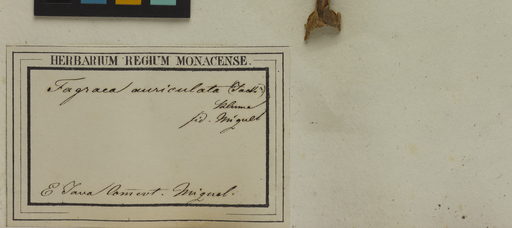 HERBARIUM REGIUM MONACENSE.
Fagraea auriculata (Jack.)
Blume
fid. Miquel
E Java Comm't. Miquel.